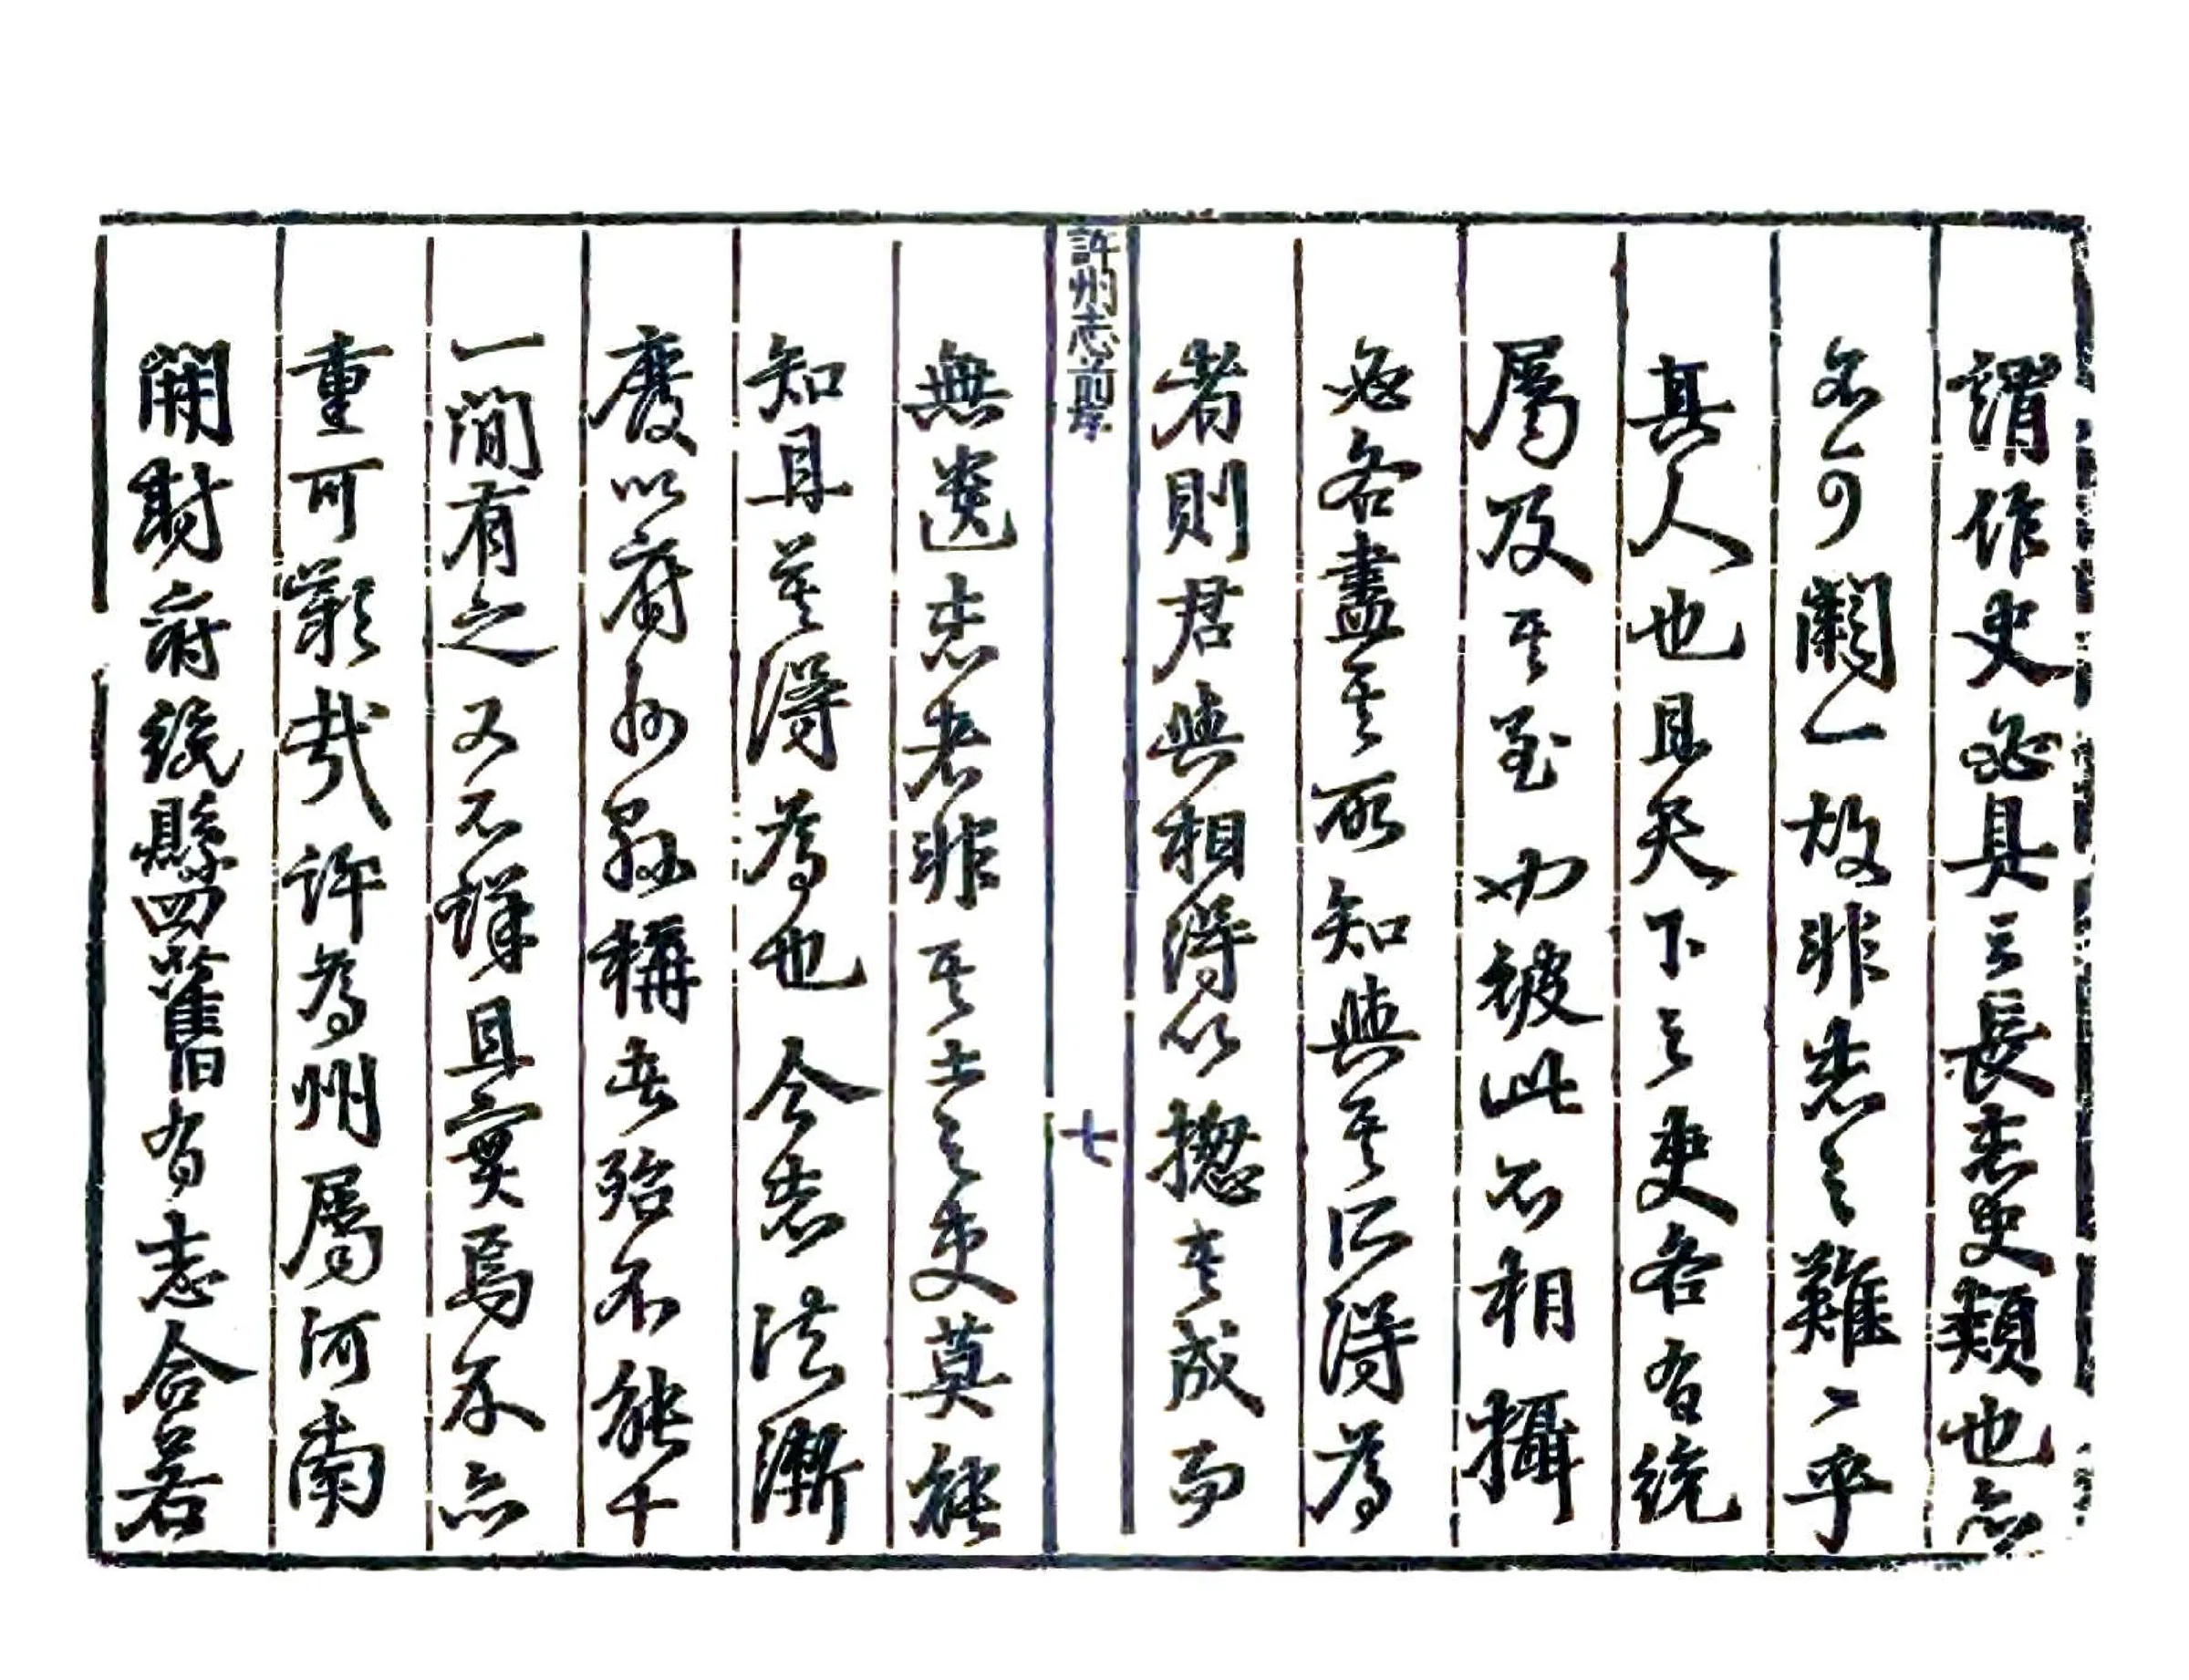 謂作史必具三長志史類也亦
不可闕一故非志之難〻乎
其人也且天下之吏各有統
屬及其至彼此不相攝
必各盡其所知與其所得為
者則君與相得以摠其成而
許州志前序
七
無遺志者非其土之吏莫能
知且莫得為也今志法漸
廢以府州縣稱者殆不能千
一間有之又不詳且實焉不亦
重可歎哉許為州屬河南
開封府統縣四舊有志合若